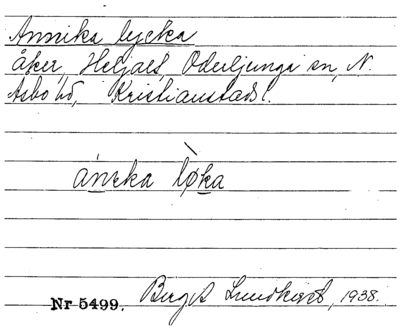 Annika lycka
åker, Heljalt, Oderljunga sn, N.
Åsbo hd, Kristianstads l.
ánιka lø̀ka
Nr 5499. Birgit Lundkvist, 1938.